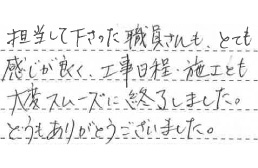 担当して下さった職員さんも、とても
感じが良く、工事日程・施工とも
大変スムーズに終了しました。
どうもありがとうございました。